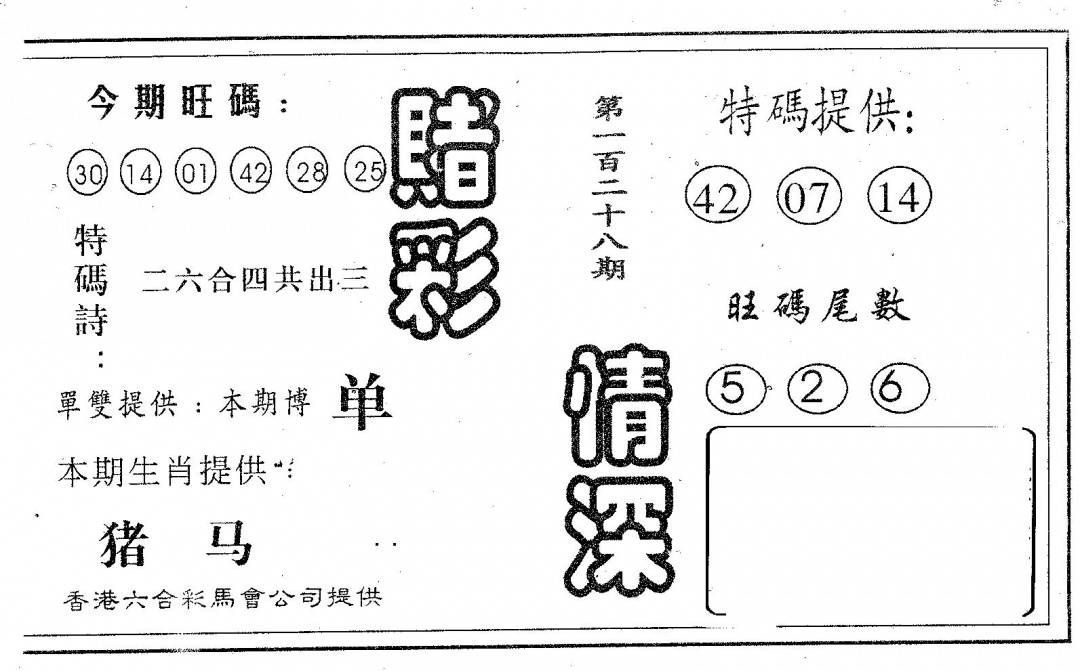 今期旺碼：
30 14 01 42 28 25
特碼詩：
二六合四共出三
單雙提供：本期博 单
本期生肖提供：
猪 马
香港六合彩馬會公司提供
賭彩
情深
第一百二十八期
特碼提供：
42 07 14
旺碼尾數
5 2 6